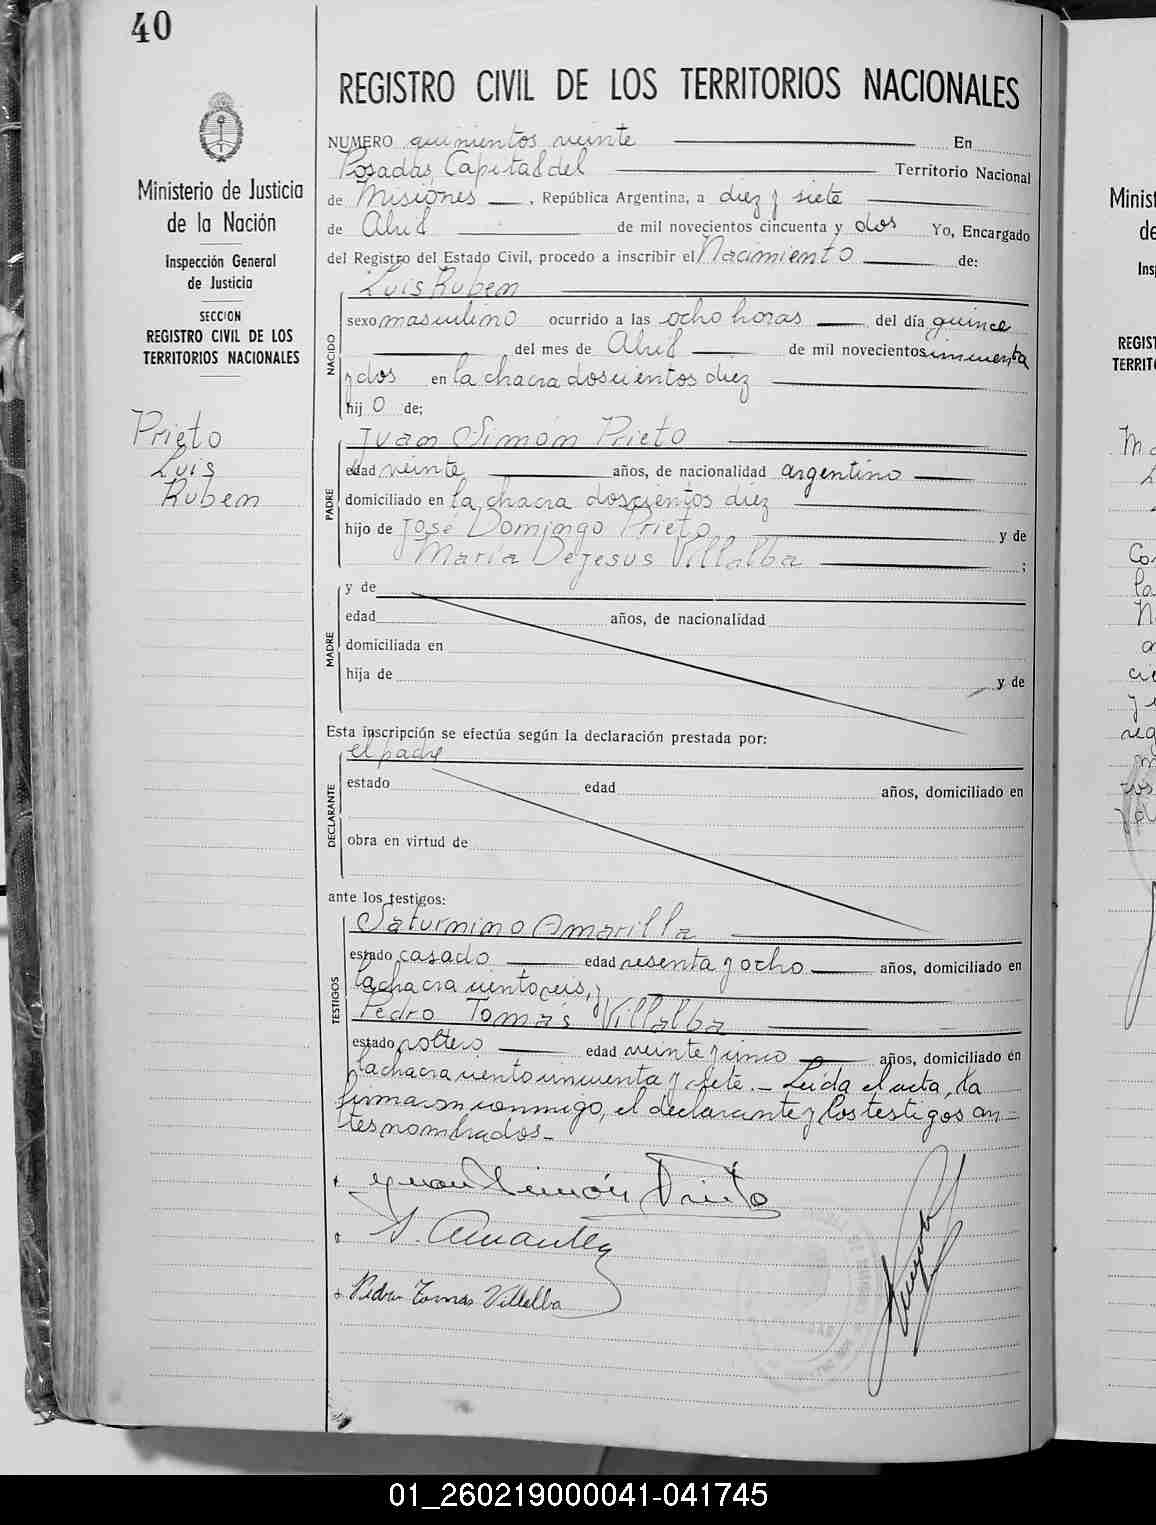 40
REGISTRO CIVIL DE LOS TERRITORIOS NACIONALES
Ministerio de Justicia
de la Nación
Inspección General
de Justicia
SECCION
REGISTRO CIVIL DE LOS
TERRITORIOS NACIONALES
Prieto
Luis
Ruben
NUMERO quinientos veinte En
Posadas, Capital del Territorio Nacional
de Misiones, República Argentina, a diez y siete
de Abril de mil novecientos cincuenta y dos Yo, Encargado
del Registro del Estado Civil, procedo a inscribir el Nacimiento de:
Luis Ruben
NACIDO
sexo masculino ocurrido a las ocho horas del día quince
del mes de Abril de mil novecientos cincuenta
y dos en la chacra doscientos diez
hij o de;
Juan Simón Prieto
PADRE
edad veinte años, de nacionalidad argentino
domiciliado en la chacra doscientos diez
hijo de José Domingo Prieto y de
María Dejesus Villalba ;
MADRE
y de
edad años, de nacionalidad
domiciliada en
hija de y de
Esta inscripción se efectúa según la declaración prestada por:
el padre
DECLARANTE
estado edad años, domiciliado en
obra en virtud de
ante los testigos:
Saturnino Amarilla
TESTIGOS
estado casado edad sesenta y ocho años, domiciliado en
la chacra ciento seis, y
Pedro Tomás Villalba
estado soltero edad veinte y cinco años, domiciliado en
la chacra ciento cincuenta y siete. - Leída el acta, la
firmaron conmigo, el declarante y los testigos an=
tes nombrados. -
Juan Simón Prieto
S. Amarilla
Pedro Tomas Villalba
Minist
de
Ins
REGIST
TERRITO
01_260219000041-041745